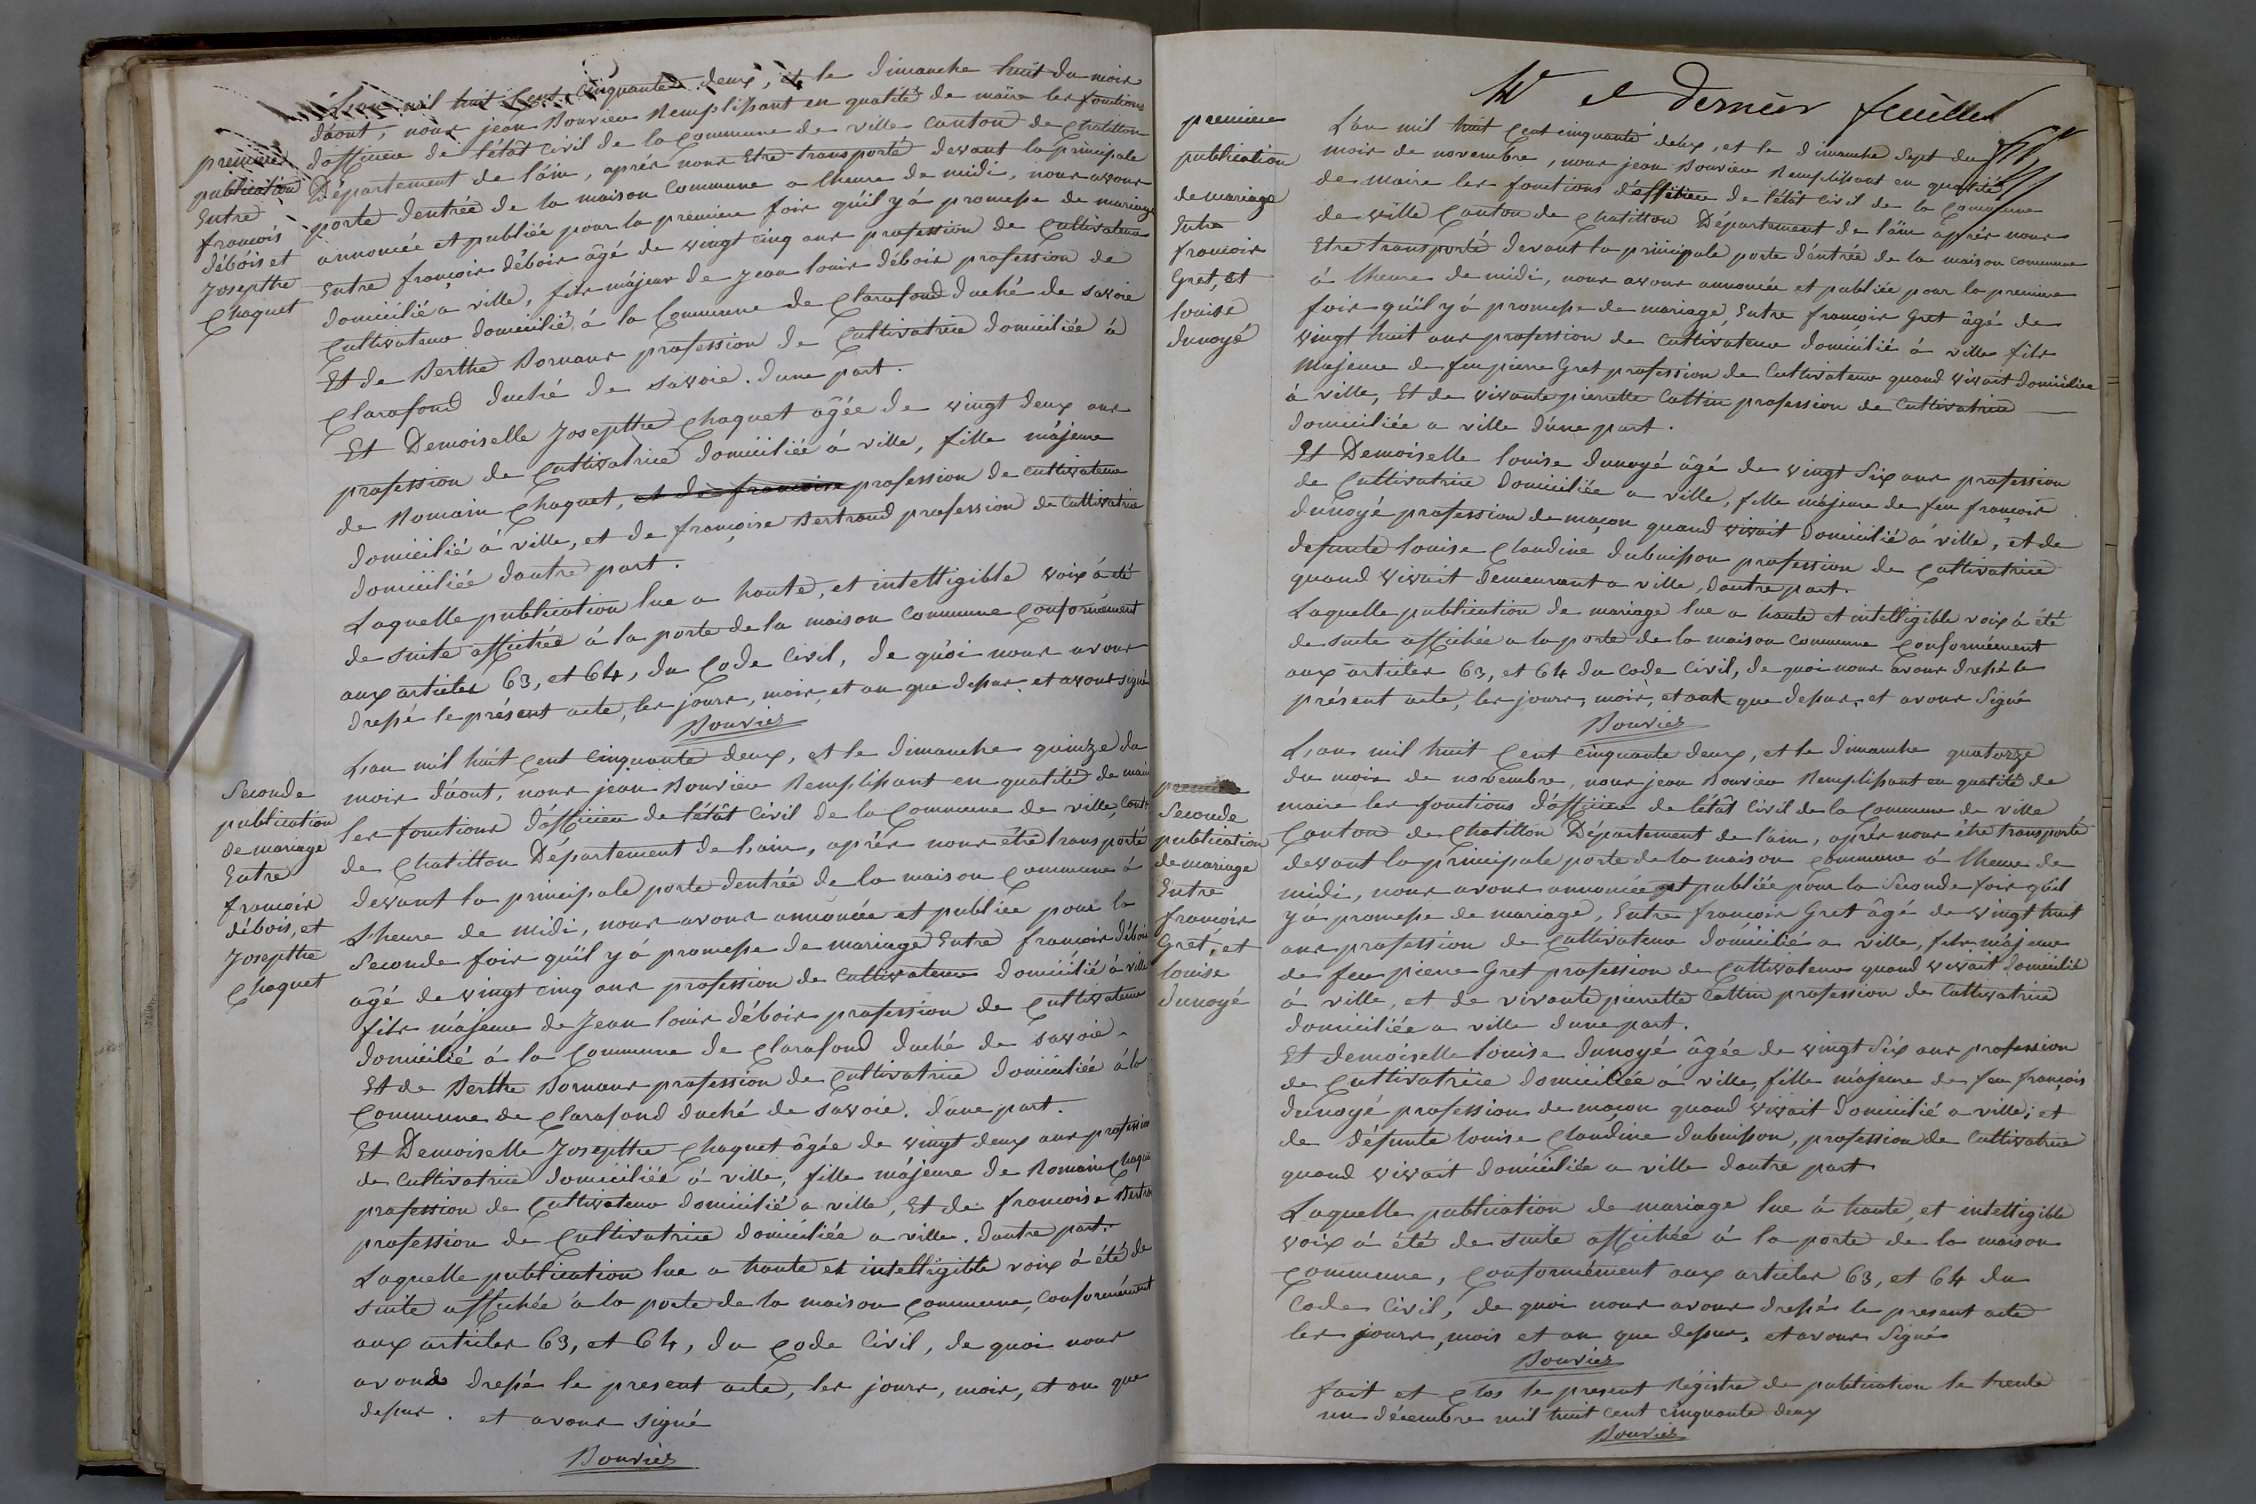 L'an mil huit Cent cinquante deux, et le dimanche huit du mois
d'août, nous jean Bouvier Remplissant en qualité de maire les fonctions
d'officier de l'état civil de la Commune de ville canton de Chatillon
Département de l'ain, aprés nous Etre transporté devant la principale
porte dentrée de la maison Commune a lheure de midi, nous avons
annoncée et publiée pour la premiere fois qu'il y á promesse de mariage
Entre françois débois âgé de vingt cinq ans profession de Cultivateur
domicilié a ville, fils májeur de jean louis débois profession de
Cultivateur domicilié á la Commune de Clarafond duché de savoie
Et de Berthe Bornans profession de Cultivatrice domiciliée á
Clarafond duché de savoie. dune part.
Et Demoiselle Josepthe Chaquet âgée de vingt deux ans
profession de Cultivatrice domiciliée á ville, fille májeure
de Romain Chaquet, et de francoise profession de cultivateur
domicilié á ville, et de françoise Bertrand profession de Cultivatrice
domiciliée dautre part.
Laquelle publication lue a haute, et intelligible voix á été
de suite affichée á la porte de la maison Commune Conformément
aux articles 63, et 64, du Code Civil, de quoi nous avons
dressé le présent acte, les jours, mois, et an que dessus, et avons signé
Bouvier
premiere
publication
Entre
francois
débois et
Josepthe
Chaquet
L'an mil huit Cent Cinquante deux, et le dimanche quinze du
mois d'août, nous jean Bouvier Remplissant en qualité de maire
les fonctions d'officier de l'état Civil de la Commune de ville, Canton
de Chatillon Département de L'ain, aprés nous être transporté
devant la principale porte dentrée de la maison Commune á
L'heure de midi, nous avons annoncée et publiée pour la
Seconde fois qu'il y á promesse de mariage Entre francois débois
âgé de vingt cinq ans profession de Cultivateur domicilié á ville
fils májeur de Jean louis débois profession de Cultivateur
domicilié á la Commune de Clarafond duché de savoie
Et de Berthe Bornans profession de Cultivatrice domiciliée á la
Commune de Clarafond duché de savoie. dune part.
Et Demoiselle Josepthe Chaquet âgée de vingt deux ans profession
de Cultivatrice domiciliée á ville, fille májeure de Romain Chaquet
profession de Cultivateur domicilié a ville, Et de francoise Bertrand
profession de Cultivatrice domiciliée a ville. dautre part.
Laquelle publication lue a haute et intelligible voix á été de
suite affichée á la porte de la maison Commune, Conformément
aux articles 63, et 64, du Code Civil, de quoi nous
avons dressé le present acte, les jours, mois, et an que
dessus. et avons signé
Bouvier
Seconde
publication
de mariage
Entre
francois
débois, et
Josepthe
Chaquet
et Dernier feuillet
L'an mil huit Cent cinquante deux, et le dimanche Sept du
mois de novembre, nous jean Bouvier Remplissant en qualité
de maire les fonctions d'officier de l'état civil de la Commune
de ville Canton de Chatillon Département de l'ain aprés nous
Etre transporté devant la principale porte d'entrée de la maison Commune
á lheure de midi, nous avons annoncée et publiée pour la premiere
fois qu'il y á promesse de mariage, Entre françois Gret âgé de
vingt huit ans profession de Cultivateur domicilié á ville fils
Majeur de feu pierre Gret profession de Cultivateur quand vivait domicilié
á ville, Et de vivante pierrette Cattin profession de Cultivatrice
domiciliée a ville d'une part.
Et Demoiselle louise dunoyé âgé de vingt Six ans profession
de Cultivatrice domiciliée a ville, fille májeure de feu françois
dunoyé profession de maçon quand vivait domicilié á ville, et de
defunte louise Claudine dubuisson profession de Cultivatrice
quand vivait demeurant a ville, dautre part.
Laquelle publication de mariage lue a haute et intelligible voix á été
de suite affichée a la porte de la maison Commune Conformément
aux articles 63, et 64 du Code Civil, de quoi nous avons dressé le
présent acte, les jours, mois, et an que dessus, et avons Signé
Bouvier
premiere
publication
de mariage
Entre
francois
Gret, et
louise
dunoyé
L'an mil huit Cent cinquante deux, et le dimanche quatorze
du mois de novembre, nous jean Bouvier Remplissant en qualité de
maire les fonctions d'officier de l'état Civil de la Commune de ville
Canton de Chatillon Département de l'ain, aprés nous être transporté
devant la principale porte de la maison Commune á lheure de
midi, nous avons annoncée et publiée pour la Seconde fois qu'il
y a promesse de mariage, Entre francois Gret âgé de vingt huit
ans profession de Cultivateur domicilié a ville, fils májeur
de feu pierre Gret profession de Cultivateur quand vivait domicilié
á ville, et de vivante pierrette Cattin profession de Cultivatrice
domiciliée a ville dune part.
Et demoiselle louise dunoyé âgée de vingt Six ans profession
de Cultivatrice domiciliée á ville, fille májeure de feu françois
dunoyé profession de maçon quand vivait domicilié a ville, et
de défunte louise Claudine dubuisson, profession de Cultivatrice
quand vivait domiciliée a ville dautre part.
Laquelle publication de mariage lue á haute, et intelligible
voix á été de suite affichée á la porte de la maison
Commune, Conformément aux articles 63, et 64 du
Code Civil, de quoi nous avons dressés le present acte
les jours, mois et an que dessus, et avons Signés
Bouvier
premiere
Seconde
publication
de mariage
Entre
francois
Gret, et
louise
dunoyé
fait et Clos le present Régistre de publication le trente
un décembre mil huit cent cinquante deux
Bouvier